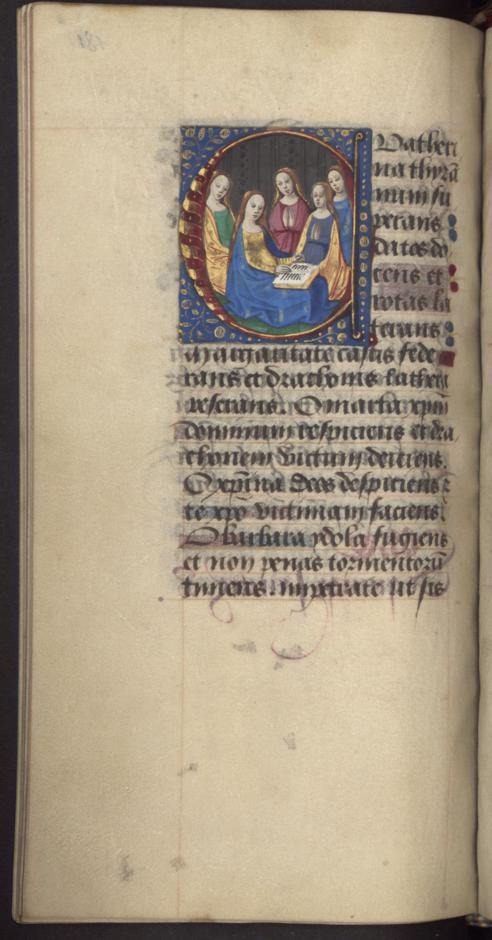 Katheri
na thyrā
num su
perans
datos do
cens et
rotas la
cerans
castis fede
rans et
reserans. O marta xpm
dominum respiciens et dra
chonem victum deiciens.
O xpina deos despiciens
te xpo victimam faciens
O barbara ydola fugiens
et non penas tormentorū
timens. impetrate ut sis